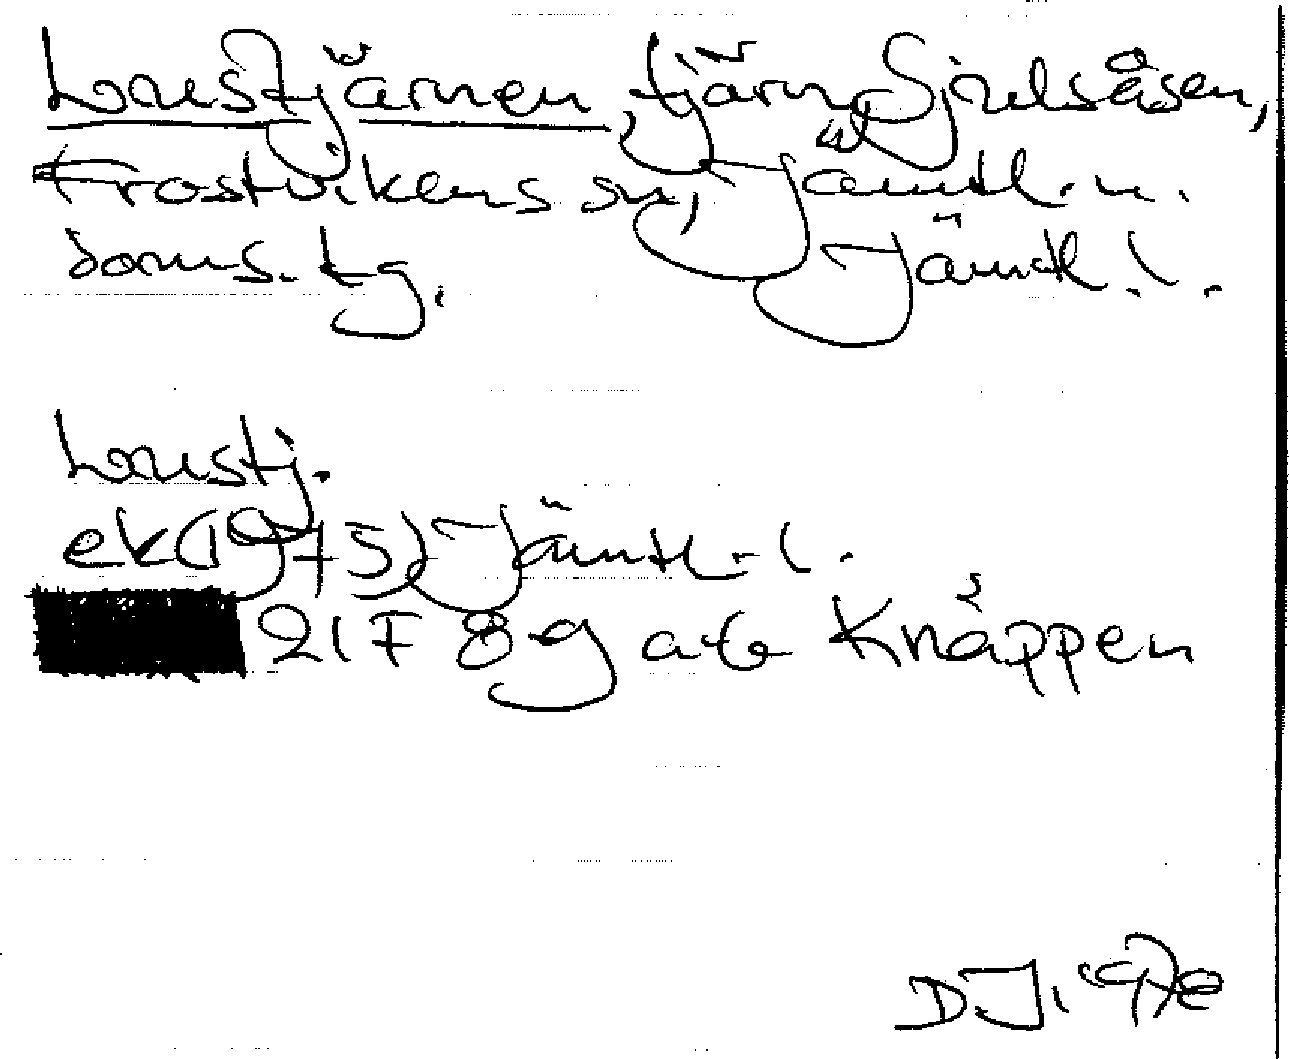 Lomstjärnen, tjärn, Sjulsåsen,
Frostvikens sn, Jämtl. n.
doms. tg. Jämtl. l.
Lomstj.
ek (1975) Jämtl. l.
217 89 a+b Knäppen